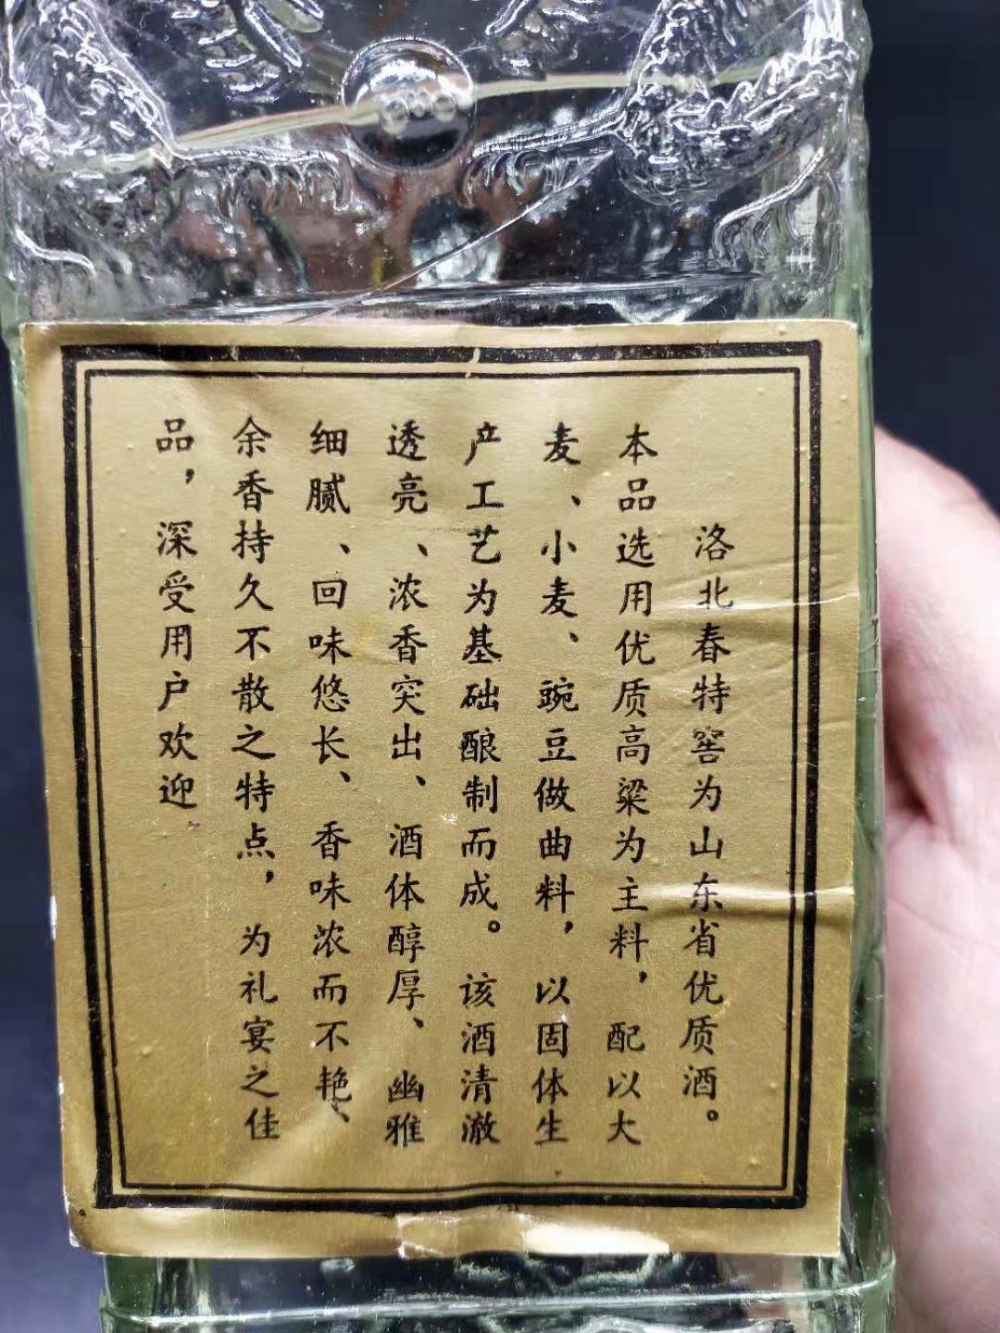 洛北春特窖为山东省优质酒。
本品选用优质高粱为主料，配以大
麦、小麦、豌豆做曲料，以固体生
产工艺为基础酿制而成。该酒清澈
透亮、浓香突出、酒体醇厚、幽雅
细腻、回味悠长、香味浓而不艳、
余香持久不散之特点，为礼宴之佳
品，深受用户欢迎